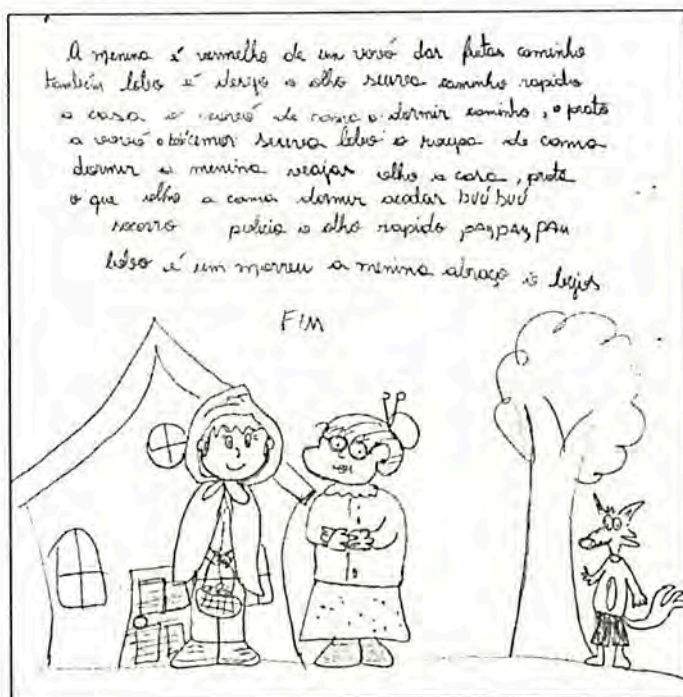 A menina é vermelho de um vovó das frutas caminho
também lobo é desejo o olho scurva caminho rapido
a casa o vovó de cama o dormir caminho, o prato
a vovó o scurva lobo o roupa de cama
dormir a menina olho a casa, prato
o que olho a cama dormir acadar buúbuú
socorro policia o olho rapido pay, pay, pau
lobo é um morreu a menina abraço o bejos
FIM